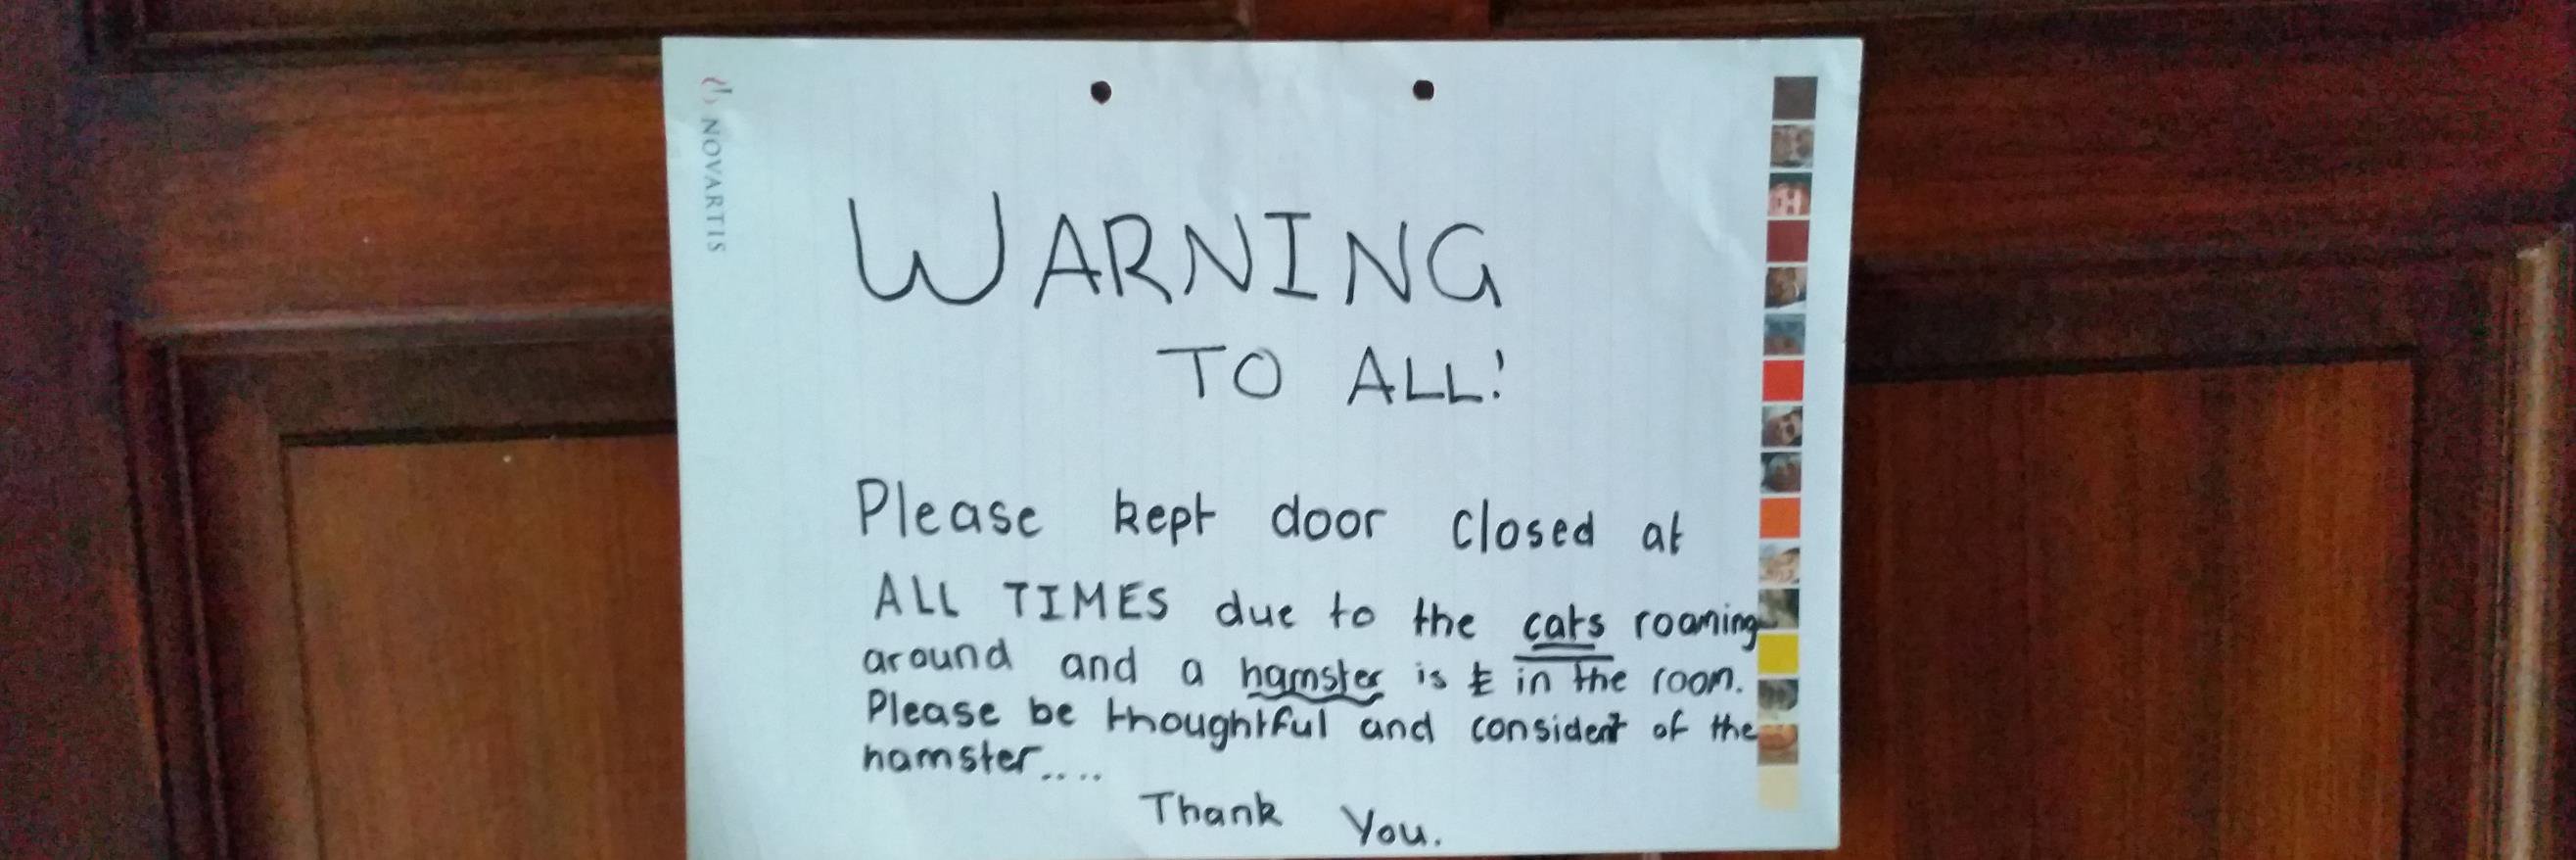 NOVARTIS
WARNING
TO ALL!
Please kept door closed at
ALL TIMES due to the cats roaming
around and a hamster is t in the room.
Please be thoughtful and considert of the
hamster....
Thank You.